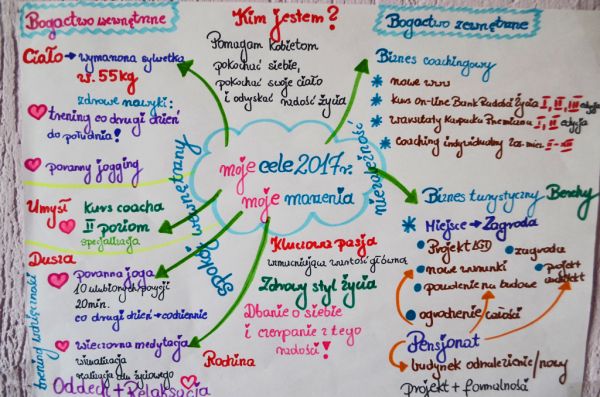 Bogactwo wewnętrzne
Kim jestem?
Bogactwo zewnętrzne
Pomagam kobietom
pokochać siebie,
pokochać swoje ciało
i odyskać radość życia
Ciało → wymarzona sylwetka
55kg
zdrowe nawyki:
trening co drugi dzień
do południa!
poranny jogging
Umysł
Kurs coacha
II poziom
specjalizacja
Dusza
poranna joga
10 ulubionych pozycji
20min.
co drugi dzień → codziennie
wieczorna medytacja
wizualizacja
Oddech + Relaksacja
trening wdzięczności
spokój wewnętrzny
moje cele 2017r.
moje marzenia
Kluczowa pasja
wzmacniająca wartość główną
Zdrowy styl życia
Dbanie o siebie
i czerpanie z tego
radości!
Rodzina
Biznes coachingowy
nowe www
kurs on-line Bank Radości Życia I, II, III edycja
warsztaty I, II edycja
coaching indywidualny
Biznes turystyczny
Miejsce → Zagroda
Projekt
zagroda
nowe warunki
projekt
pozwolenie na budowę
ogrodzenie/całości
Pensjonat
budynek odnalezienie/nowy
projekt + formalności